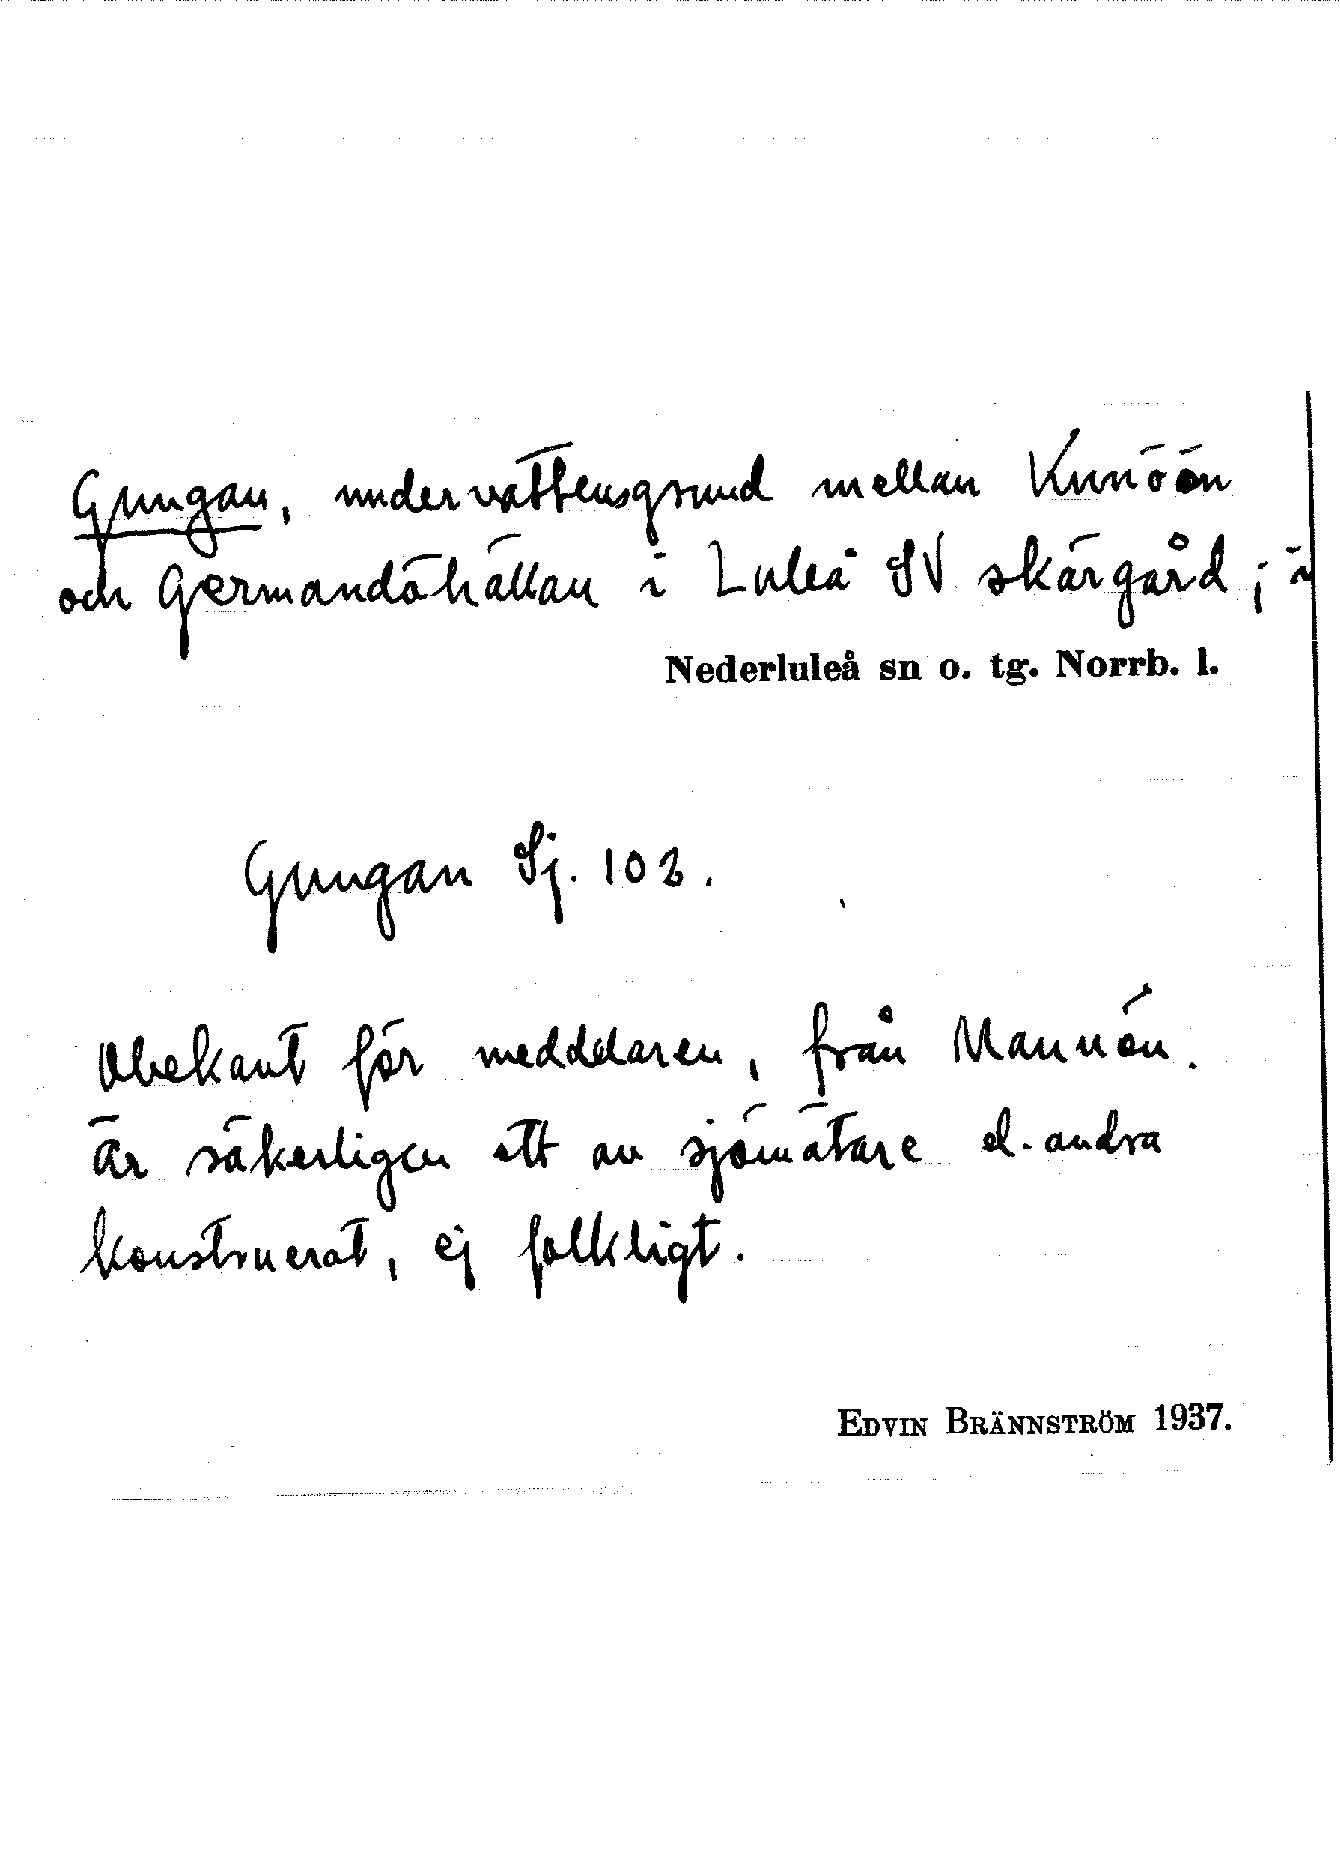 Gungan, undervattensgrund mellan Kunöön
och Germandöhällan i Luleå SV skärgård; i
Nederluleå sn o. tg. Norrb. l.
Gungan Sj. 102.
Obekant för meddelaren, från Mannön.
Är säkerligen ett av sjömätare el. andra
konstruerat, ej folkligt.
EDVIN BRÄNNSTRÖM 1937.